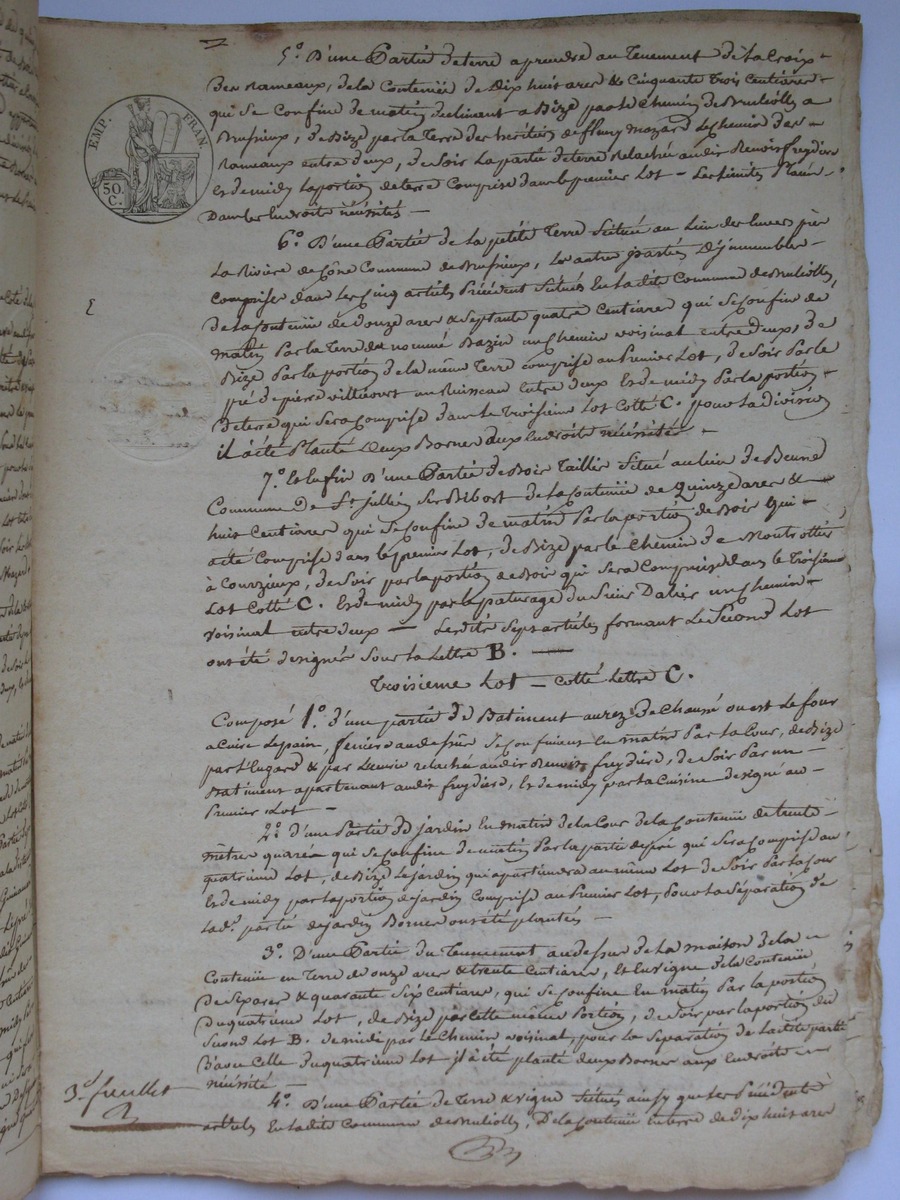 5º. D'une Partie de terre a prendre au Tenement de la Croix
Des rameaux, de la Contenüe de Dix huit ares & Cinquante Trois Centiares
qui se Confine de matin declinant a Bize par le Chemin de Brulliolles a
Brussieux, de Bize par la Terre des heritiers de fleury mozard le chemin des
rameaux entre deux, de soir la partie de terre relachée audit Benoit freydiere
Et de midy la portion de terre Comprise dans le premier Lot — Les limites Placées
Dans les endroits néséssités —
6º. D'une Partie de la petite Terre Scituée au Lieu des près
La Riviere de Cône Commune de Brussieux, les autres parties D'immeubles
comprises dans les Cinq articles Précédent Situés En la dite Commune de Brulliolles
de la Contenüe de douze ares & Septante quatre Centiares qui se Confine de
matin Par la Terre du nommé Bazin un chemin voisinal entre deux, de
Bize Par la portion de la même Terre comprise au Premier Lot, de Soir Par le
pré de pierre villecourt un Ruisseau Entre deux Et de midy Par la portion
de terre qui sera Comprise dans le Troisieme Lot Cotté C. pour la division
il a été Planté deux Bornes aux Endroits néséssités —
7º. Et Enfin D'une Partie de Bois Taillis Situé au lieu de
Commune De St. Jullien Sur Bibost de la Contenüe de Quinze ares &
huit Centiares qui se Confine de matin Par la portion de Bois Qui
a été Comprise dans le premier Lot, de Bize par le Chemin de Montrottier
à Courzieux, de Soir par la portion de Bois qui Sera Comprise dans le Troisieme
Lot Cotté C. Et de midy par le paturage du Sieur Dalier un Chemin
voisinal entre deux — Lesdits Sept articles formant Le Second Lot
ont été designés Sous la Lettre B. —
Troisieme Lot — Cotté Lettre C.
Composé 1º. d'une partie de Batiment au rez De Chaussé ou est Le four
a Cuire Le pain, feniere au dessus Se Confinent En matin Par la Cour, de Bize
par L'hugard & par L'ecurie relachée audit Benoit freydiere, de Soir Par un
Batiment apartenant audit freydiere, Et de midy par la Cuisine designé au
Premier Lot —
2º. D'une Partie de jardin En matin de la Cour de la Contenüe de trente
mêtres quarrés qui se Confine de matin Par la partie de pré qui Sera Comprise au
quatrieme Lot, de Bize Le jardin qui apartiendra au même Lot de Soir Par la Cour
Et de midy par la portion de jardin Comprise au Premier Lot, Pour la Séparation de
lad. partie de jardin Bornes ont été plantés —
3º. D'une Partie du Tennement au dessus de La maison de la
Contenüe en Terre de onze ares & trente Centiares, Et En vigne de la Contenüe
de Six ares & quarante Six Centiares, qui se Confine En matin Par la portion
du quatrieme Lot, de Bize par cette même Portion, de Soir par la portion du
Second Lot B. de midi par le Chemin voisinal, pour la Separation de la dite partie
D'avec Celle du quatrieme Lot il a été planté deux Bornes aux Endroits
néséssité —
3e. feuillet
4º. D'une Partie de Terre & vigne Situés ainsy que les Précédents
articles En la dite Commune de Brulliolles, De la Contenüe En terre de dix huit ares
EMP. FRAN.
50 C.